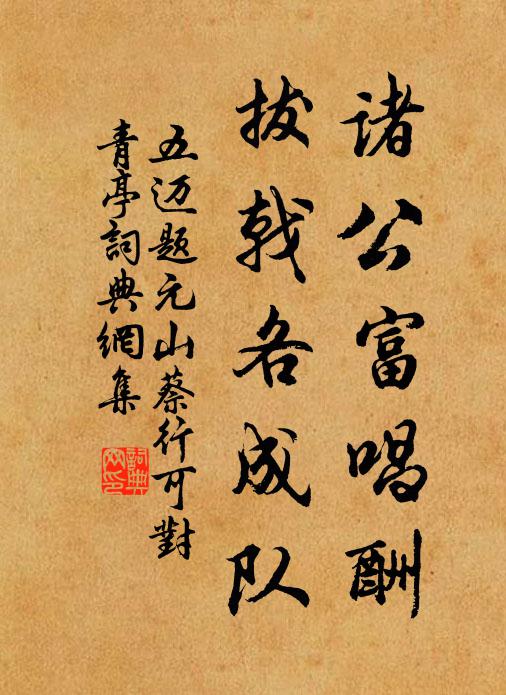 诸公富唱酬
拔戟各成队
五迈题元山蔡行可對
青亭詞典網集
詞典
网印